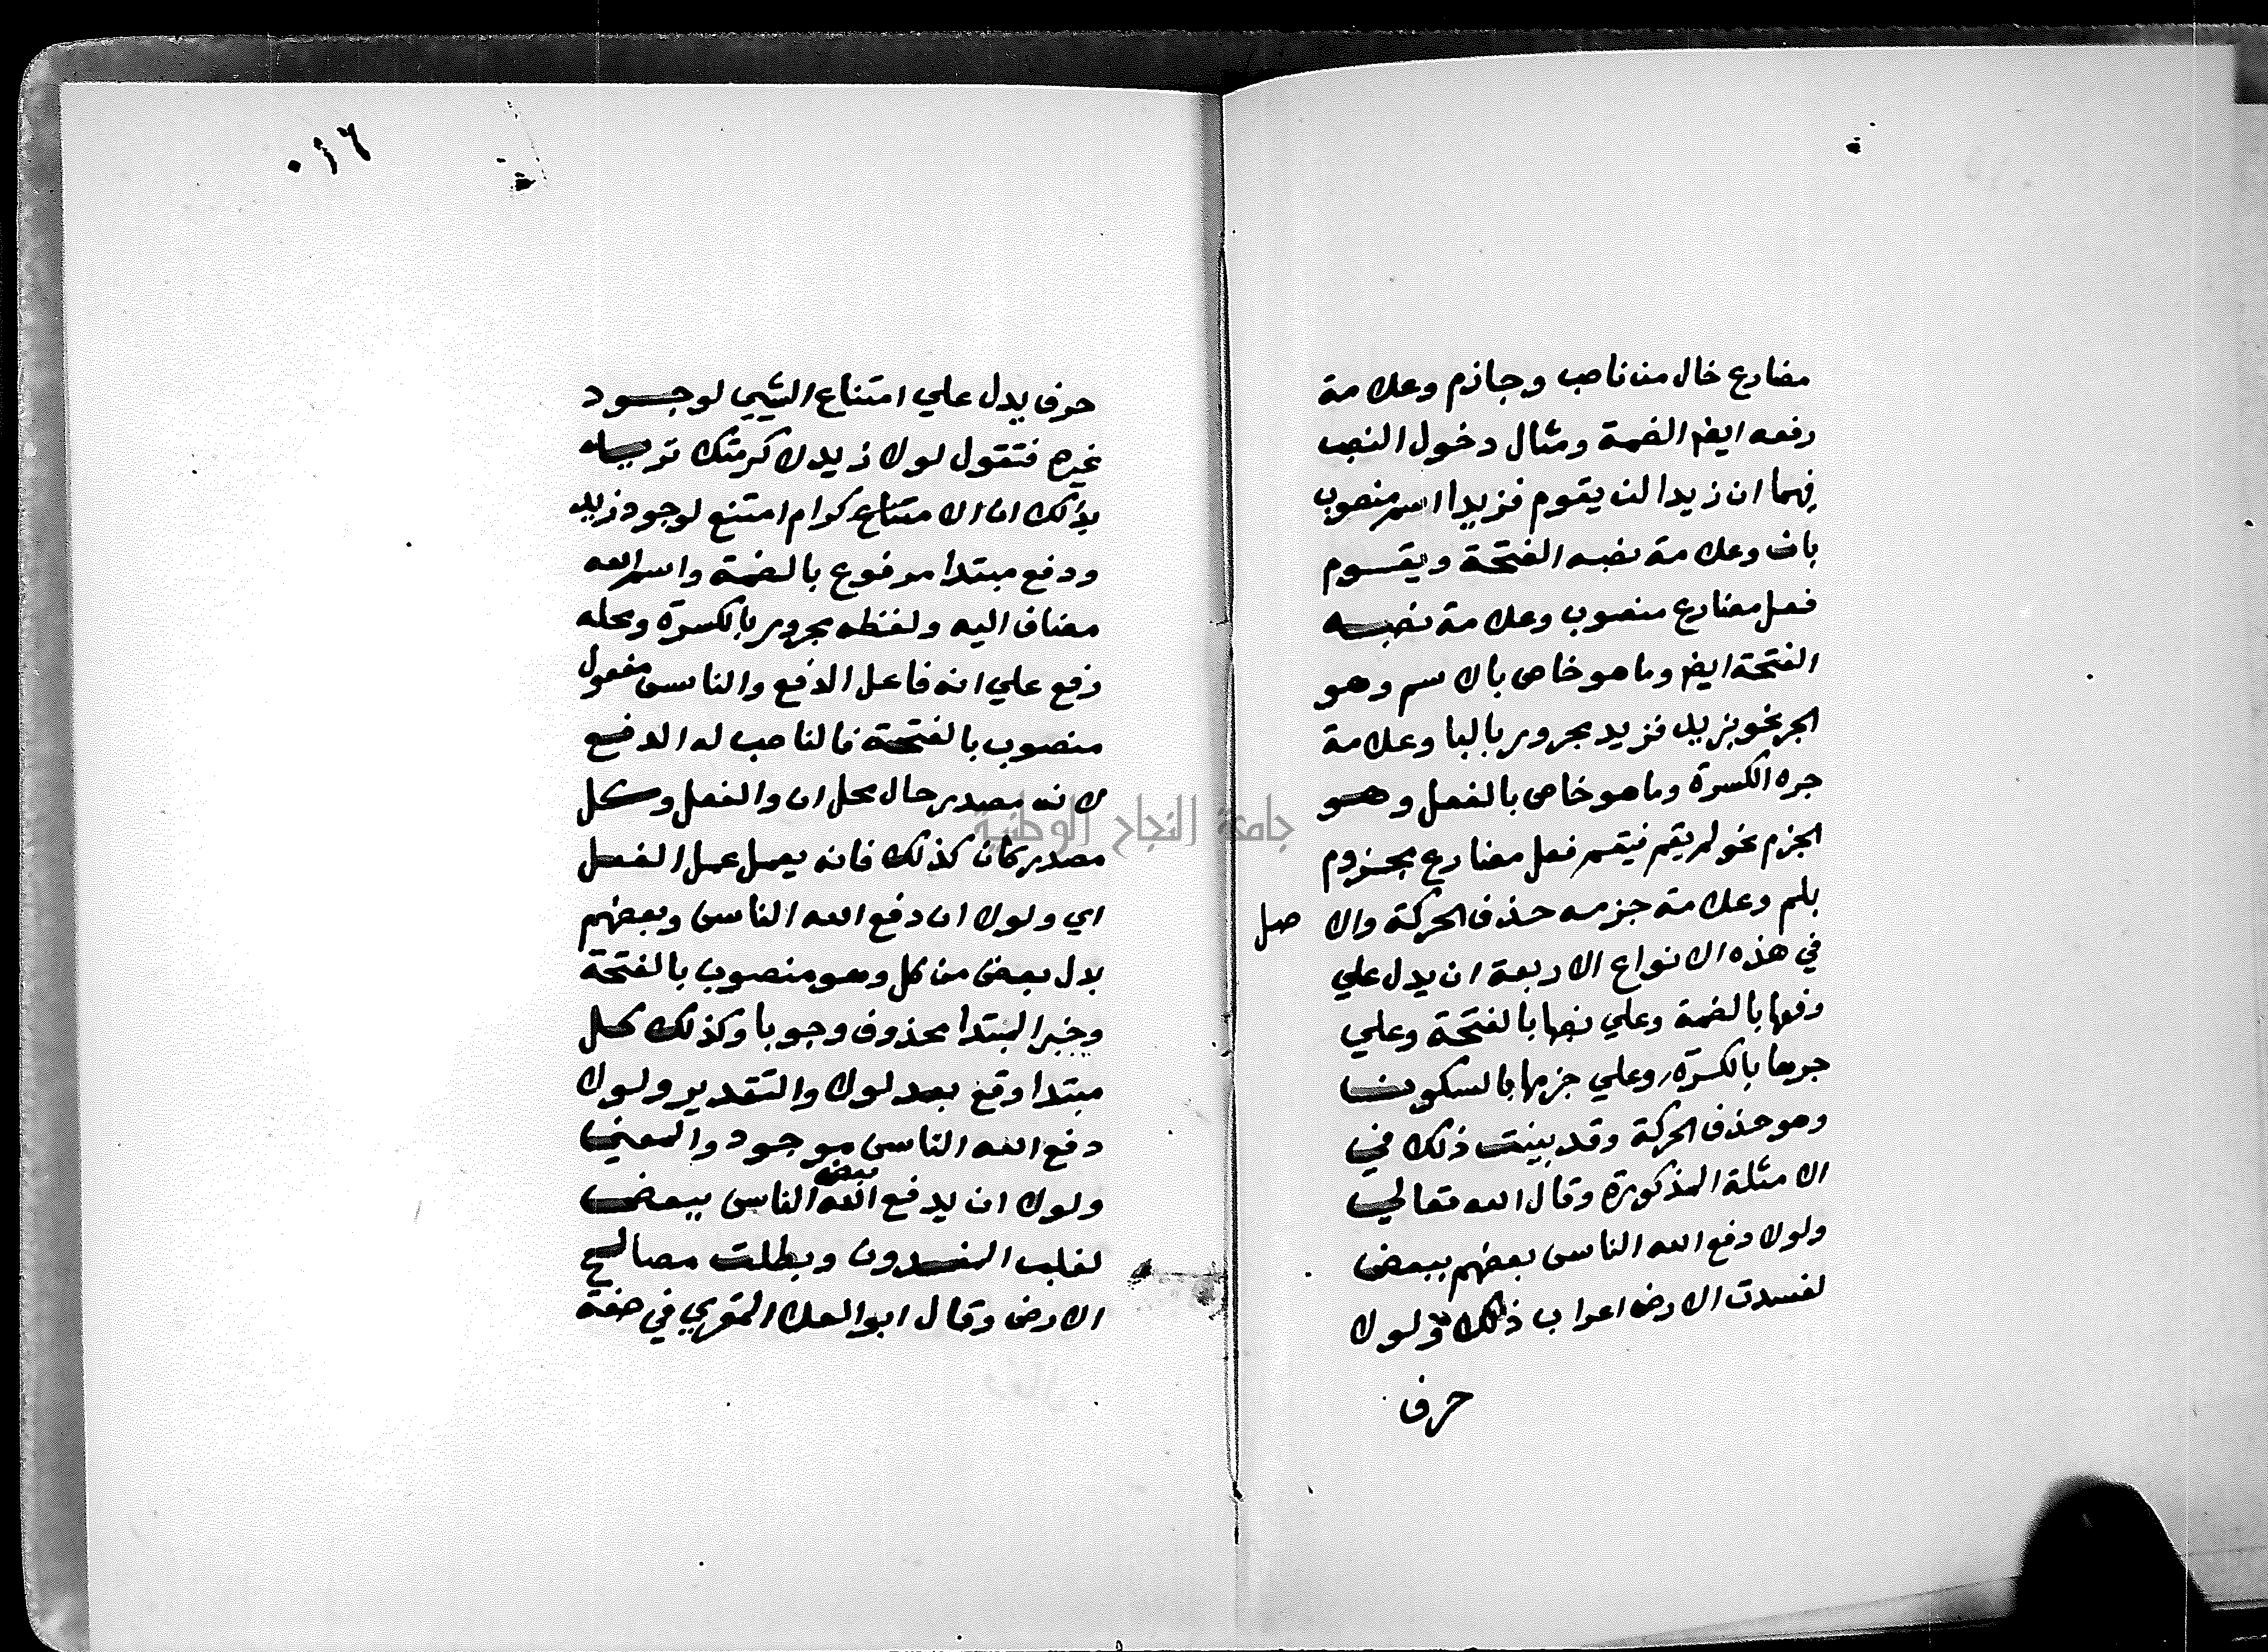 مضارع خال من ناصب وجازم وعلامة
رفعه ايض الضمة ومثال دخول النصب
فيهما ان زيدا لن يقوم فزيدا اسم منصوب
بان وعلامة نصبه الفتحة ويقوم
فعل مضارع منصوب وعلامة نصبه
الفتحة ايض وما هو خاص بالاسم وهو
الجر نحو بزيد فزيد مجرور بالبا وعلامة
جره الكسرة وما هو خاص بالفعل وهو
الجزم نحو لم يقم فيقم فعل مضارع مجزوم
بلم وعلامة جزمه حذف الحركة والاصل
في هذه الانواع الاربعة ان يدل علي
رفعها بالضمة وعلي نصبها بالفتحة وعلي
جرها بالكسرة وعلي جزمها بالسكون
وهو حذف الحركة وقد بينت ذلك في
الامثلة المذكورة وقال الله تعالي
ولولا دفع الله الناس بعضهم ببعض
لفسدت الارض اعراب ذلك ولولا
حرف
٠١٦
حرف يدل علي امتناع الشيي لوجود
غيره فتقول لولا زيد لاكرمتك تريد
بذلك ان الامتناع كرام امتنع لوجود زيد
ودفع مبتدا مرفوع بالضمة واسم الله
مضاف اليه ولفظه مجرور بالكسرة ومحله
رفع علي انه فاعل الدفع والناس مفعول
منصوب بالفتحة فالناصب له الدفع
لانه مصدر حال محل ان والفعل وكل
مصدر كان كذلك فانه يعمل عمل الفعل
اي ولولا ان دفع الله الناس وبعضهم
بدل بعض من كل وهو منصوب بالفتحة
وخبر المبتدا محذوف وجوبا وكذلك كل
مبتدا وقع بعد لولا والتقدير ولولا
دفع الله الناس موجود والمعني
ولولا ان يدفع الله بعض الناس ببعض
لغلب المفسدون وبطلت مصالح
الارض وقال ابو العلا المقري في صفة
جامعة النجاح الوطنية